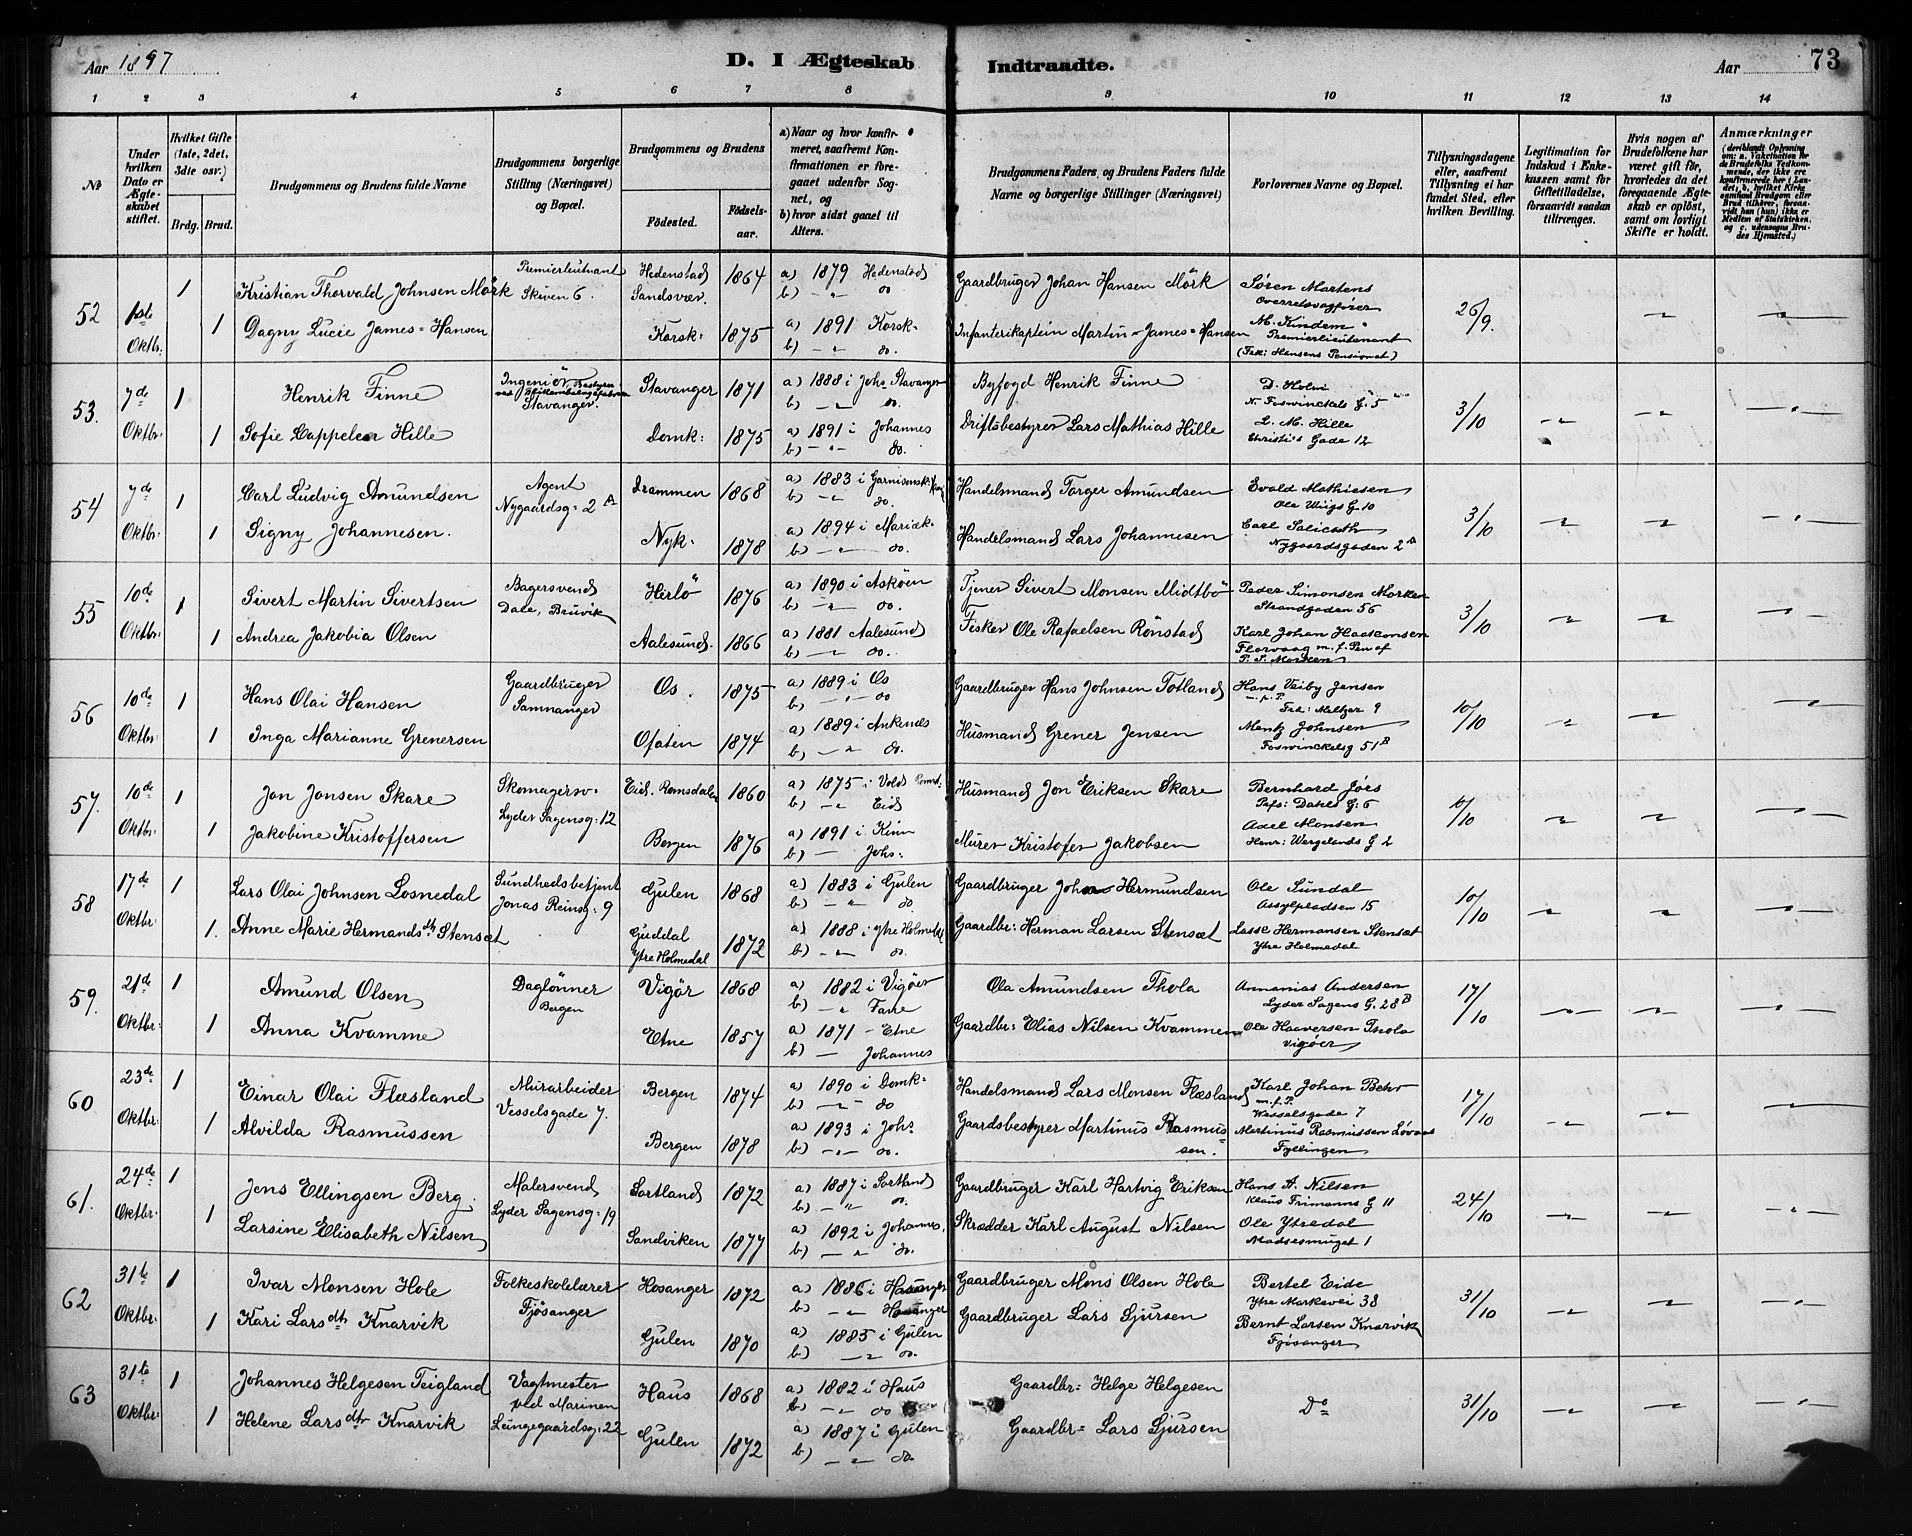 Aar 1897
D. I Ægteskab Indtraadte.
Aar
73
1 2 3 4 5 6 7 8 9 10 11 12 13 14
№
Under hvilken Dato er Ægteskabet stiftet.
Hvilket Gifte (1ste, 2det, 3die osv.)
Brdg. Brud.
Brudgommens og Brudens fulde Navne
Brudgommens borgerlige Stilling (Næringsvei) og Bopæl.
Brudgommens og Brudens
Fødested.
Fødselsaar.
a) Naar og hvor konfirmeret, saafremt Konfirmationen er foregaaet udenfor Sognet, og
b) hvor sidst gaaet til Alters.
Brudgommens Faders, og Brudens Faders fulde Navne og borgerlige Stillinger (Næringsvei)
Forlovernes Navne og Bopæl.
Tillysningsdagene eller, saafremt Tillysning ei har fundet Sted, efter hvilken Bevilling.
Legitimation for Indskud i Enkekassen samt for Giftetilladelse, forsaavidt saadan tiltrænges.
Hvis nogen af Brudefolkene har været gift før, hvorledes da det foregaaende Ægteskab er opløst, samt om lovligt Skifte er holdt.
Anmærkninger (deriblandt Oplysning om: a. Vakcination for de Brudefolks Vedkommende, der ikke ere konfirmerede her i Landet, b. hvilket Kirkesamfund Brudgom eller Brud tilhører, forsaavidt han (hun) ikke er Medlem af Statskirken, og c. udensogns Brudes Hjemsted.)
52 1ste Oktbr: 1 Kristian Thorvald Johnsen Mörk Premierlieutnant Skiven 6. Hedenstad Sandsvær. 1864 a) 1879 Hedenstad b) -"- do Gaardbruger Johan Hansen Mörk Søren Martens Overretssagfører 26/9.
1 Dagny Lucie James=Hansen Korsk: 1875 a) 1891 Korsk- b) -"- do. Infanterikaptein Martin James=Hansen M. Kindem Premierlieutenant (Frk: Hansens Pensionat)
53. 7de Oktbr: 1 Henrik Finne Ingeniör, Stavanger. Stavanger 1871 a) 1888 i Johs Stavanger b) -"- do. Byfogd Henrik Finne D. Holm N. Foswinckels G. 5 3/10
1 Sofie Cappelen Hille Domk: 1875 a) 1891 i Johannes b) -"- do. Driftsbestyrer Lars Mathias Hille L. M. Hille Christies Gade 12
54 7de Oktbr: 1 Carl Ludvig Amundsen Agent Nygaardsg: 2A Drammen 1868 a) 1883 i Garnisonsk: b) -"- do. Handelsmand Torger Amundsen Evald Mathiesen Ole Wiigs G 10 3/10
1 Signy Johannesen. Nyk- 1878 a) 1894 i Mariæk- b) -"- do. Handelsmand Lars Johannesen Carl Salicath Nygaardsgaden 2A
55 10de Oktbr: 1 Sivert Martin Sivertsen Bagersvend Dale, Bruvik Herlö 1876 a) 1890 i Asköen b) -"- do. Tjener Sivert Monsen Midtbö Peder Simonsen Morken Strandgaden 56 3/10
1 Andrea Jakobia Olsen Aalesund. 1866 a) 1881 Aalesund b) -"- do. Fisker Ole Rafaelsen Rönstad Karl Johan Haakonsen Florvaag m. f. Pen af P. S. Morken
56 10de Oktbr: 1 Hans Olai Hansen Gaardbruger Samnanger Os. 1875 a) 1889 i Os b) -"- do Gaardbruger Hans Johnsen Totland Hans Veiby Jensen m. f. P. Frk: Meltzer 9 10/10
1 Inga Marianne Grenersen Ofoten 1874 a) 1889 i Ankenes b) -"- do. Husmand Grener Jensen Mentz Johnsen Foswinckelsg 51B
57. 10de Oktbr: 1 Jon Jonsen Skare Skomagersv. Lyder Sagensg: 12 Eid. Romsdalen 1860 a) 1875 i Vold Romsd. b) -"- Eid Husmand Jon Eriksen Skare Bernhard Jörs Pofs: Dahls G: 6 10/10
1 Jakobine Kristoffersen Bergen 1876 a) 1891 i Kinn b) — Johs: Murer Kristofer Jakobsen Adel Monsen Henr: Wergelands G 2
58 17de Oktbr: 1 Lars Olai Johnsen Losnedal Sundhedsbetjent Jonas Reinsg: 9 Gulen 1868 a) 1883 i Gulen b) -"- do Gaardbruger Johan Hermundsen Ole Sundal Assylpladsen 15 10/10
1. Anne Marie Hermandsdtr Stensæt Guddal Ytre Holmedal 1872 a) 1888 i ytre Holmedal b) -"- do. Gaardbr: Herman Larsen Stensæt Lasse Hermansen Stensæt Ytre Holmedal
59. 21de Oktbr: 1 Amund Olsen Daglønner Bergen Vigör 1868 a) 1882 i Vigöer b) -"- Fane Ola Amundsen Thola Annanias Andersen Lyder Sagens G. 28B 17/10
1 Anna Kvamme Etne 1857 a) 1871 - Etne b) — Johannes Gaardbr: Elias Nilsen Kvammen Ole Haaversen Thola Vigöer
60 23de Oktbr: 1 Einar Olai Flæsland Murarbeider Vesselsgade 7. Bergen 1874 a) 1890 i Domk: b) -"- do Handelsmand Lars Monsen Flæsland Karl Johan Behr m. f. P. Wesselsgade 7 17/10
1 Alvilda Rasmussen Bergen 1878 a) 1893 i Johs b) -"- do. Gaardsbestyrer Martinus Rasmussen. Martinus Rasmussen Løvaas Fyllingen
61. 24de Oktbr: 1 Jens Ellingsen Berg. Malersvend Lyder Sagensg: 19 Sortland 1872 a) 1887 i Sortland b) -"- do. Gaardbruger Karl Hartvig Eriksen Hans A. Nilsen Klaus Frimanns G 11 24/10
1 Larsine Elisabeth Nilsen Sandviken 1877 a) 1892 i Johannes. b) -"- do. Skrædder Karl August Nilsen Ole Ytredal Madsesmuget 1
62 31te Oktbr: 1 Ivar Monsen Hole Folkeskolelærer Fjösanger Hosanger 1872 a) 1886 i Hosanger b) -"- Hosanger Gaardbruger Mons Olsen Hole Bertel Eide Ytre Markevei 38 31/10
1 Kari Larsdtr Knarvik Gulen 1870 a) 1885 i Gulen b) -"- do. Gaardbruger Lars Sjursen Bernt Larsen Knarvik Fjösanger
63 31te Oktbr: 1 Johannes Helgesen Teigland Vagtmester ved Marinen Lungegaardsg: 22 Haus 1868 a) 1882 i Haus b) -"- do Gaardbr= Helge Helgesen Do 31/10
1 Helene Larsdtr Knarvik Gulen 1872 a) 1887 i Gulen b) -"- do. Gaardbr= Lars Sjursen